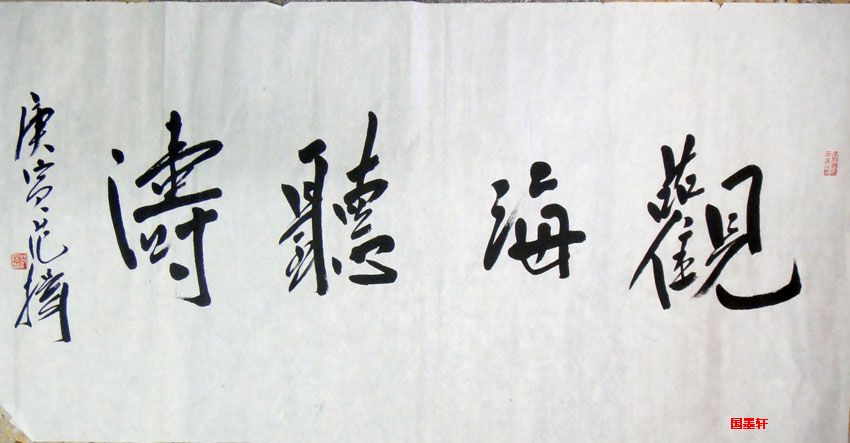 觀海聽濤
庚寅范揚
国墨轩